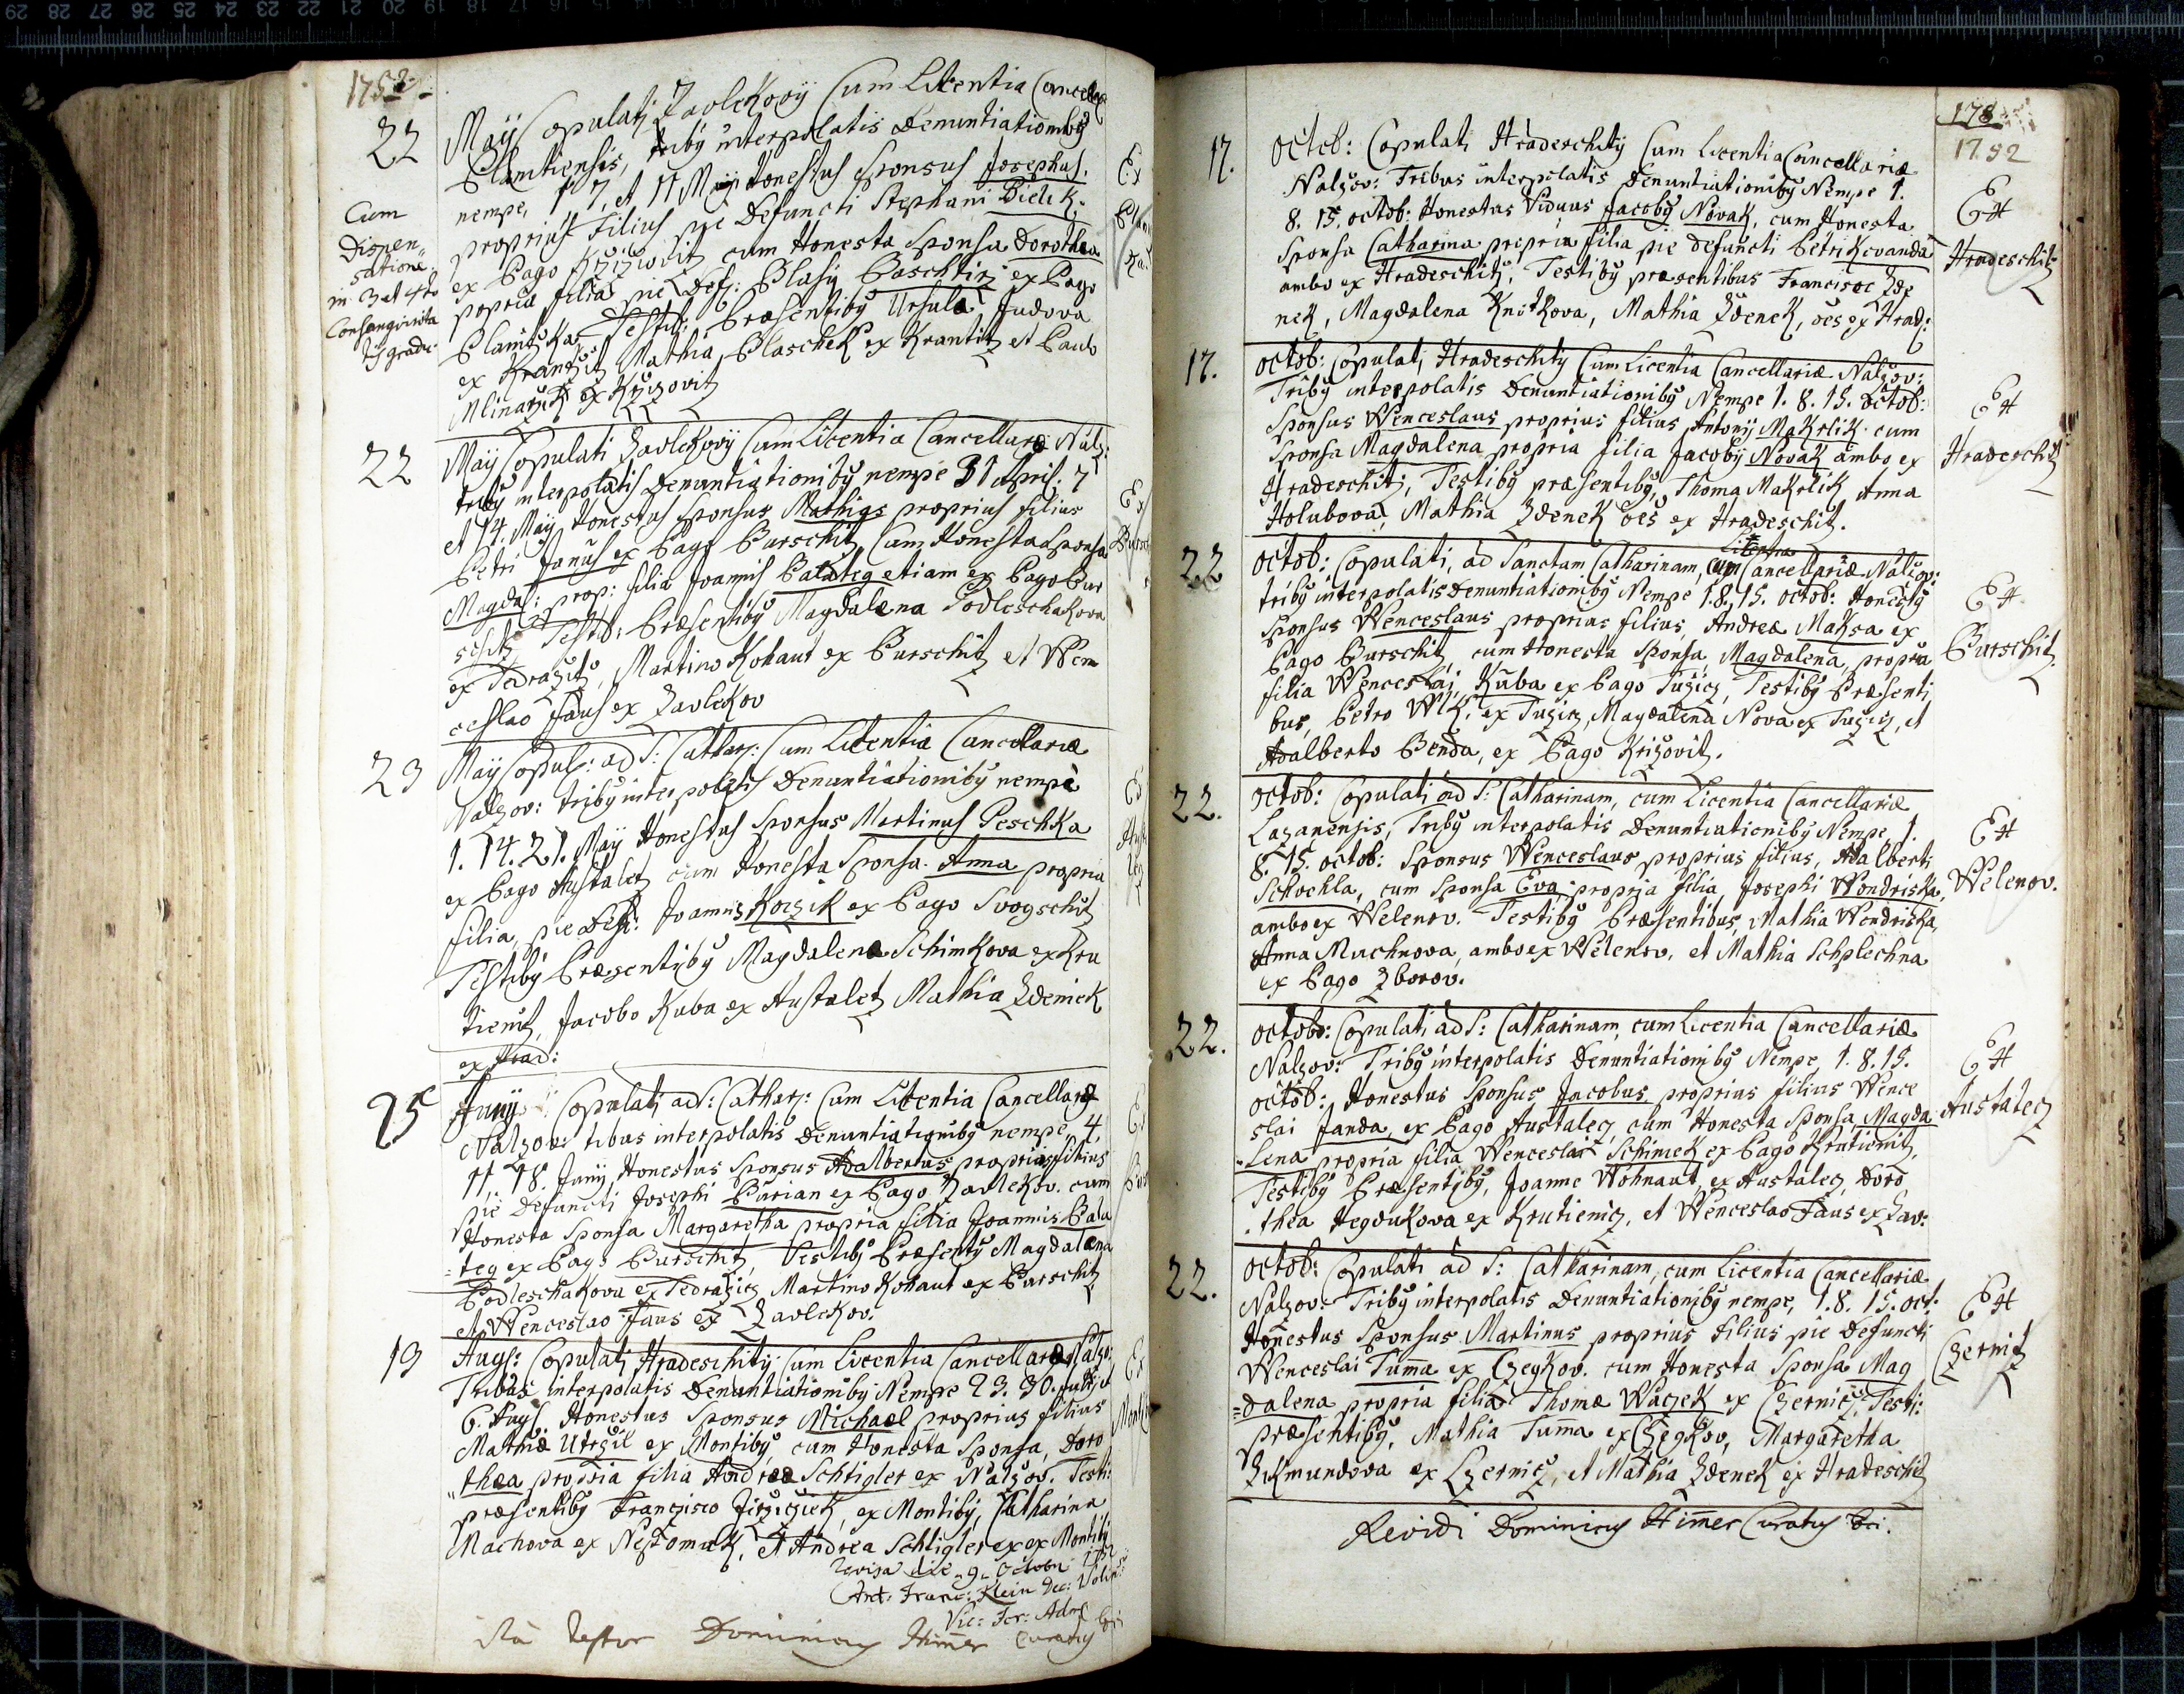 1752
22 Maÿ Copulati Zavlekovÿ Cum Licentia Cancellar
Planitiensis, tribꝰ interpolatis Denuntiationibꝰ
nempe, 1 7, et 11 Maÿ Honestus Sponsus Josephus,
proprius Filius pie Defuncti Stephani Bielek,
ex Pago Krziziovit cum Honesta Sponsa Dorothea
propria filia pie Def: Blasÿ Paschtirz ex Pago
Planitzka Testib: Præsentibꝰ Ursula Judova
ex Krantzit Mathia Blaschek ex Krantitz et Paulo
Mlinarzik ex Krzizovitz
Cum
Dispen„
satione
in 3 at 4to
Consangvinita
tis gradu
Ex
22 Maÿ Copulati Zavlekovÿ Cum Licentia Cancellariæ Nalz:
tribꝰ interpolatis Denuntiationibꝰ nempe 31 April: 7
et 14. Maÿ, Honestus Sponsus Mathias proprius filius
Petri Janus ex Pago Purschitz Cum Honesta Sponsa
Magdal: prop: filia Joannis Palateg etiam ex Pago Pur
schitz Testib: Præsentibꝰ Magdalena Podleschakova
ex Tedrazitz, Martino Kohaut ex Purschitz et Wen
ceslao Faus ex Zavlekov
Ex
23 Maÿ Copul: ad S: Cathar: Cum Licentia Cancelariæ
Nalzov: tribꝰ interpolatis Denuntiationibꝰ nempe
1. 14. 21. Maÿ Honestus Sponsus Martinus Peschka
ex Pago Hustaletz cum Honesta Sponsa Anna propria
filia, pie Def: Joannis Korzik ex Pago Svogschitz
Testibꝰ Præsentibꝰ Magdalena Schimkova ex Kru
tienitz, Jacobo Kuba ex Hustaletz Mathia Zdeniek
ex Hrad:
25 Junÿ Copulati ad S: Cathar: Cum Licentia Cancellariæ
Nalzov: tribus interpolatis Denuntiationibꝰ nempe, 4,
11, 18. Junÿ, Honestus Sponsus Adalbertus proprius filius
pie Defuncti Josephi Burian ex Pago Zavlekov. cum
Honesta Sponsa Margaretha propria filia Joannis Pala
=teg ex Pago Purschitz, Testibꝰ Præsentibꝰ Magdalena
Podleschakova ex Tedrazicz, Martino Kohaut ex Purschitz
et Wenceslao Faus ex Zavlekov.
19 Aug: Copulati Hradeschitÿ Cum Licentia Cancellariæ Nalzo:
Tribus interpolatis Denuntiationibꝰ Nempe 23. 30. Julÿ et
6. Aug: Honestus Sponsus Michael proprius filius
Mathiæ Utrzil ex Montibꝰ, cum Honesta Sponsa, Doro
„thea propria filia Andreæ Schtigler ex Nalzov. Testi:
præsentibꝰ Franczisco Jirzicziek, ex Montibꝰ, Catharina
Machova ex Nepomuk, et Andrea Schtigler ex ex Montibꝰ
revisa die 9 Octobri 1752
Ant: Franc: Klein Dec: Volin:
Vic: For: Adm
ita testor Dominicus Himer Curatus loci
178
1752
17. Octob: Copulati Hradeschitÿ Cum Licentia Cancellariæ
Nalzov: Tribus interpolatis Denuntiationibꝰ Nempe 1.
8. 15. octob: Honestus Viduus Jacobꝰ Novak, cum Honesta
Sponsa Catharina propria filia pie defuncti Petri Kovanda
ambo ex Hradeschitz, Testibꝰ præsentibus Francisco Zde
nek, Magdalena Knotkova, Mathia Zdenek, oēs ex Hrad:
EH
Hradeschitz
17. octob: Copulati, Hradeschitÿ Cum Licentia Cancellariæ Nalzov:
Tribꝰ interpolatis Denuntiationibꝰ Nempe 1. 8. 15. octob:
Sponsus Wenceslaus proprius filius, Antonÿ Makrlik cum
Sponsa Magdalena propria filia Jacobÿ Novak ambo ex
Hradeschitz, Testibꝰ præsentibꝰ, Thoma Makrlik, Anna
Holubova, Mathia Zdenek oēs ex Hradeschitz.
EH
Hradeschitz
22 octob: Copulati, ad Sanctam Catharinam, cum Licentia Cancellariæ Nalzov:
tribꝰ interpolatis Denuntiationibꝰ Nempe 1. 8. 15. octob: Honestꝰ
Sponsus Wenceslaus proprius filius, Andreæ Maksa ex
Pago Purschitz, cum Honesta Sponsa, Magdalena, propria
filia Wenceslai, Kuba ex Pago Tuzicz, Testibꝰ Præsenti
bus, Petro Wlk, ex Tuzicz, Magdalena Nova ex Tuzicz, et
Adalberto Benda, ex Pago Krizovit.
EH
Purschitz
22. octob: Copulati ad S: Catharinam, cum Licentia Cancellariæ
Lazanensis, Tribꝰ interpolatis Denuntiationibꝰ Nempe, 1.
8. 15. octob: Sponsus Wenceslaus proprius filius, Adalberti
Schochla, cum Sponsa Eva propria filia, Josephi Wondriska,
ambo ex Welenov. Testibꝰ Præsentibus, Mathia Wondriska,
Anna Muchnova, ambo ex Welenov, et Mathia Schplechna
ex Pago Zborov.
EH
Welenov.
22. octob: Copulati ad S: Catharinam, cum Licentia Cancellariæ
Nalzov: Tribꝰ interpolatis Denuntiationibꝰ Nempe, 1. 8. 15.
octob: Honestus Sponsus Jacobus proprius filius Wence
slai Janda ex Pago Hustalecz, cum Honesta Sponsa Magda
„lena propria filia Wenceslai Schimek ex Pago Krutienitz,
Testibꝰ Præsentibꝰ, Joanne Wohnaut, ex Hustalecz, Doro
thea Hegdukova ex Krutienicz, et Wenceslao Faus ex Zav:
EH
Hustalecz
22. octob: Copulati ad S: Catharinam, cum Licentia Cancellariæ
Nalzov: Tribꝰ interpolatis Denuntiationibꝰ nempe, 1. 8. 15. oct:
Honestus Sponsus Martinus proprius filius pie Defuncti
Wenceslai Tum̄a ex Czegkov. cum Honesta Sponsa Mag
=dalena propria filia Thomæ Waczek ex Czernicz, Testi:
præsentibꝰ, Mathia Tum̄a ex Czegkov, Margaretha
Zikmundova ex Czernicz, et Mathia Zdenek ex Hradeschitz
EH
Czernitz
Revidi Dominicus Him̄er Curatus loci.